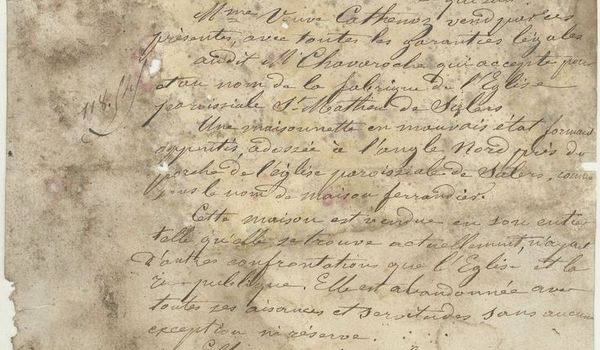 Mme Veuve Cathenos vend par ces
présentes, avec toutes les garanties légales
audit Mr Chavaroche qui accepte pour
et au nom de la fabrique de l'Eglise
paroissiale St Mathieu de Salers
Une maisonnette en mauvais état formant
appentis, adossée à l'angle Nord près du
porche de l'église paroissiale de Salers, connue
sous le nom de maison ferrandier.
Cette maison est vendue en son entier
telle qu'elle se trouve actuellement, n'ayant
d'autres confrontations que l'Eglise et la
rue publique. Elle est abandonnée avec
toutes ses aisances et servitudes sans aucune
exception ni réserve.